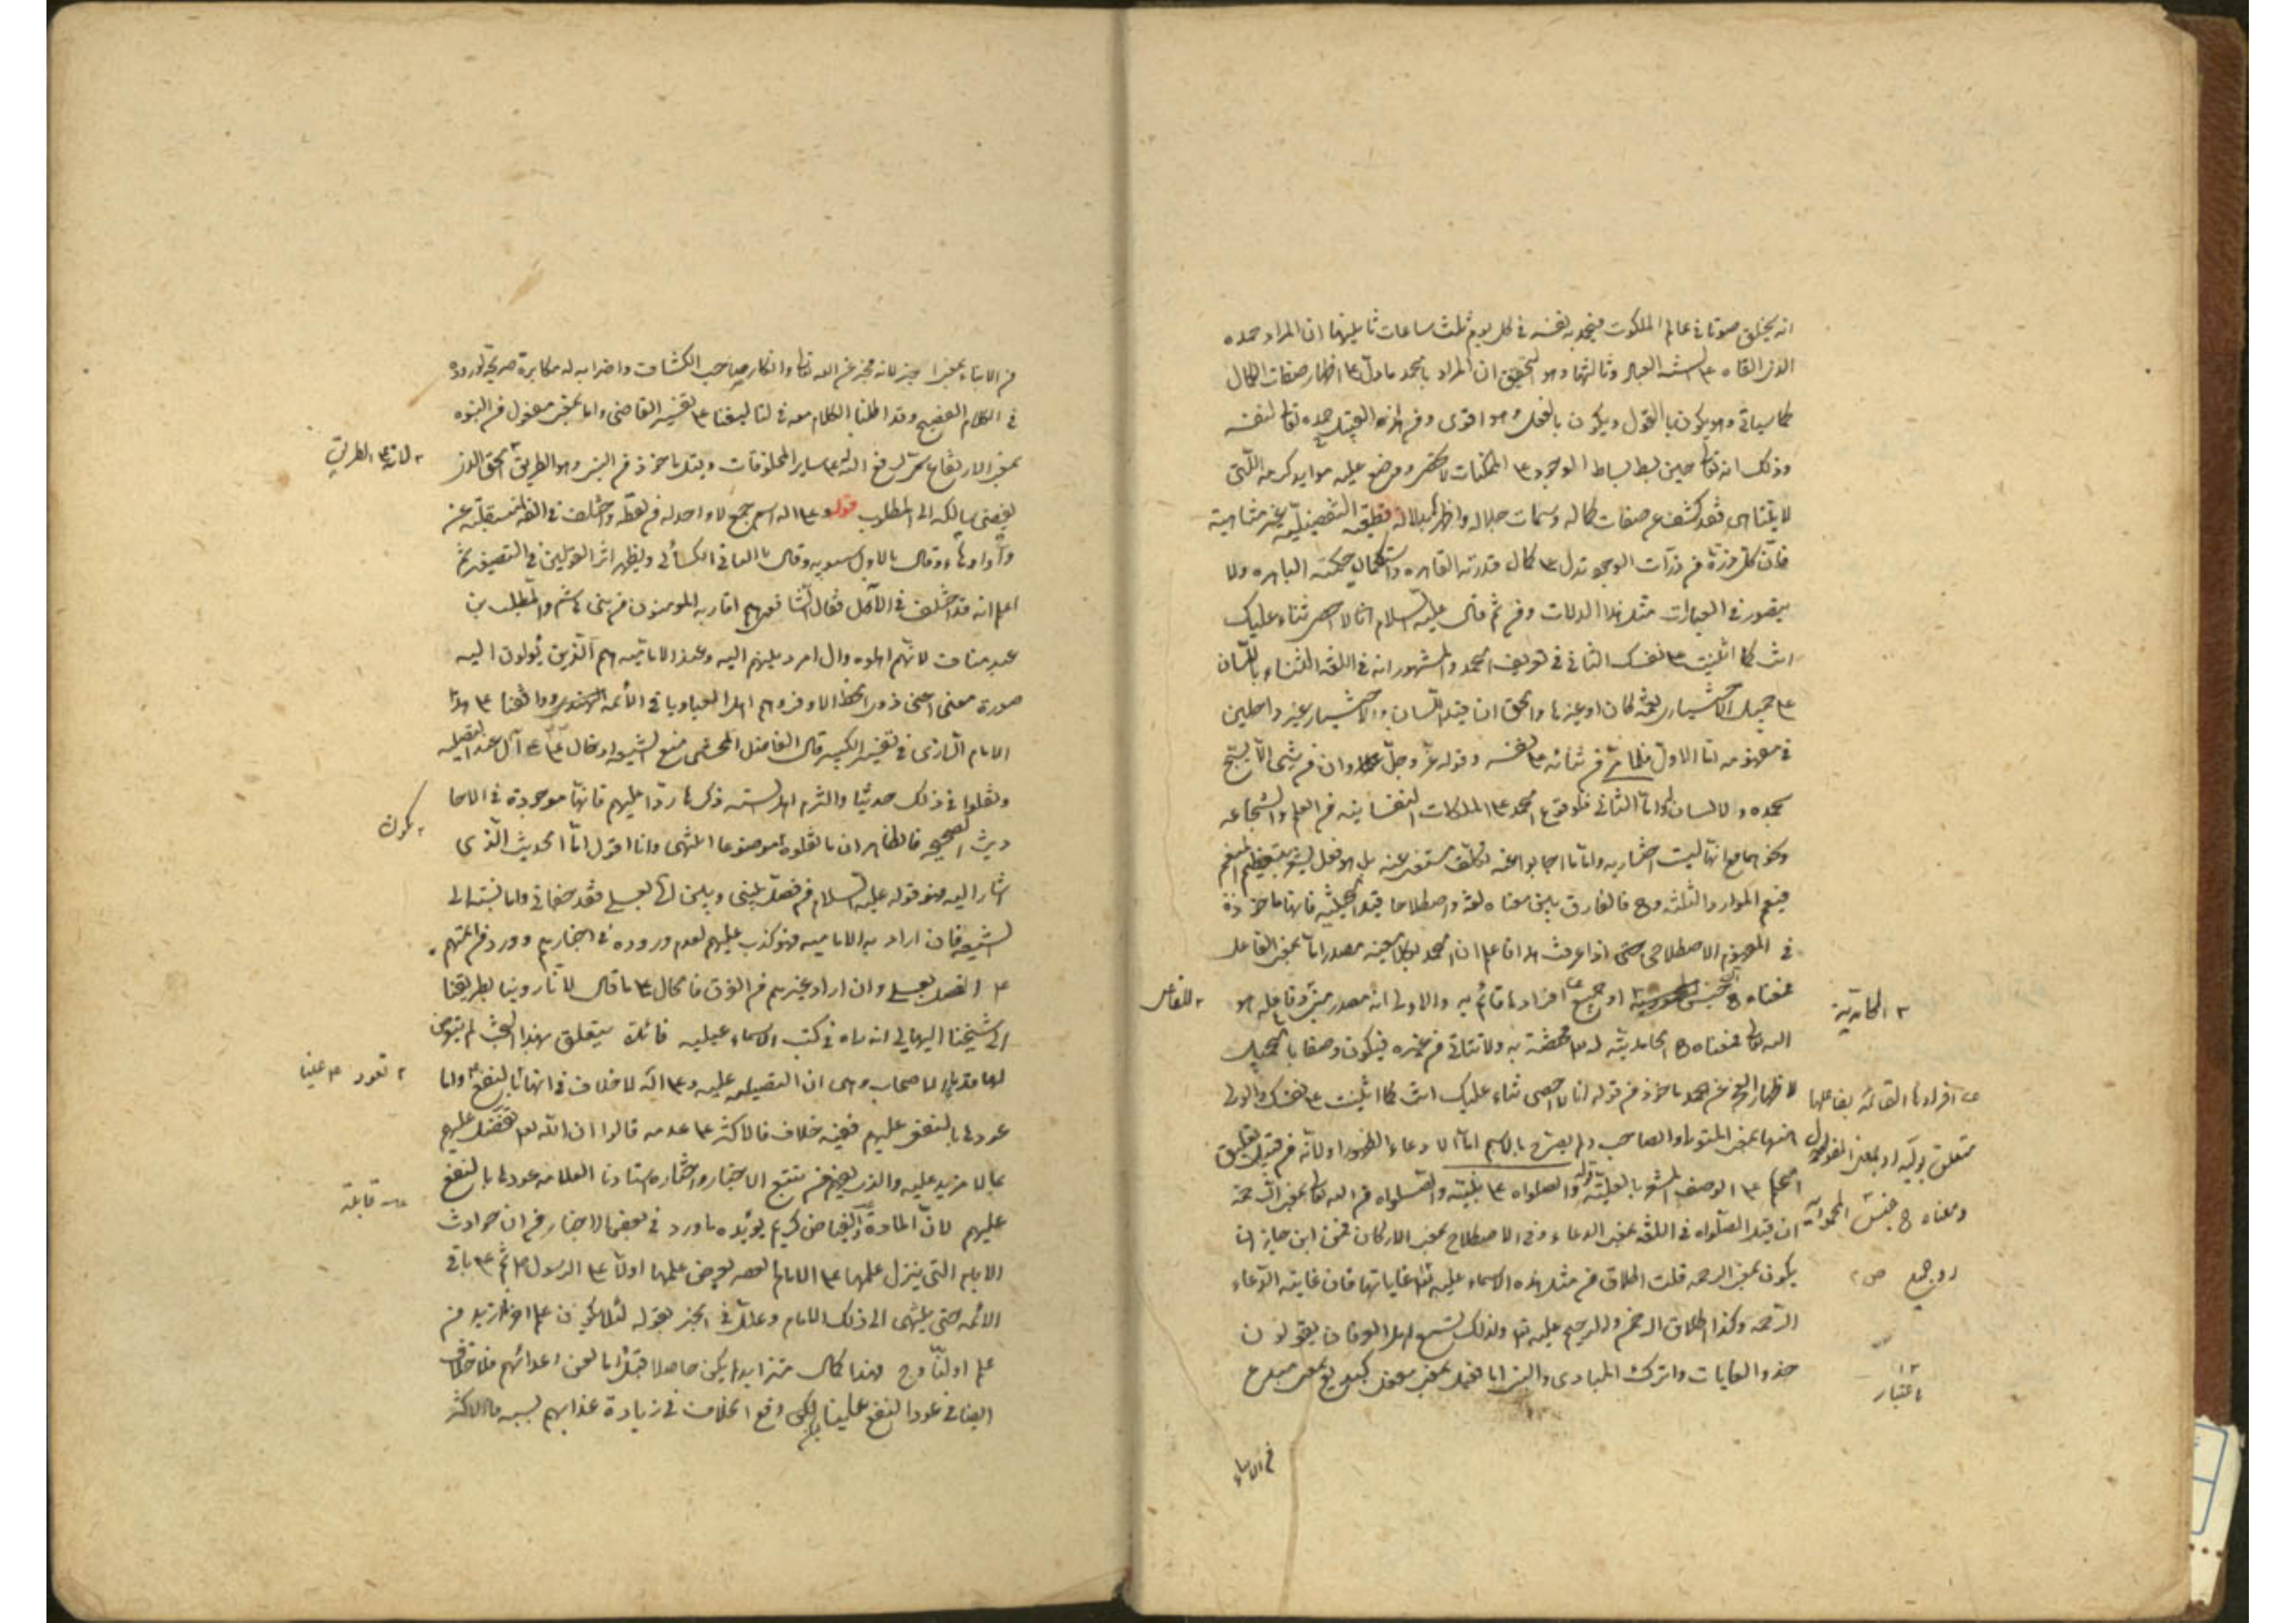 انه يخلق صوتا في عالم الملكوت فيحمد به نفسه في كل يوم ثلث ساعات ثانيها ان المراد حمده
الذي القاه على السنة العباد وثالثها وهو التحقيق ان المراد بالحمد ما دل على اظهار صفات الكمال
كما سياتي وهو يكون بالقول ويكون بالفعل وهو اقوى ومن هذا القبيل حمده تعالى لنفسه
وذلك انه تعالى حين بسط بساط الوجود على الممكنات لا تحصى ووضع عليه موايد كرمه التي
لا يتناهى فقد كشف عن صفات كماله وسمات جلاله واظهر بدلالة قطعية تفصيلية غير متناهية
فان كل ذرة من ذرات الوجود تدل على كمال قدرته القاهره واستكمال حكمته الباهره ولا
يتصور في العبارات مثل هذا الدلالات ومن ثم قال عليه السلام انا لا احصي ثناء عليك
انت كما اثنيت على نفسك الثاني في تعريف الحمد والمشهور انه في اللغة الثناء باللسان
على جميل الاختياري نعمة كان او غيرها والحق ان قيد اللسان والاختيار غير داخلين
في مفهومه اما الاول فلما مر من ثنائه على نفسه وقوله عز وجل وان من شيء الا يسبح
بحمده ولا لسان له واما الثاني فلوقوع الحمد على الملكات النفسانية من العلم والشجاعة
ونحوهما مع انها ليست اختيارية واما ما اجابوا عنه تكلف مستغن عنه بل هو فعل يشعر بتعظيم المنعم
فيعم الموارد الثلثة وح فالفارق بين معناه لغة واصطلاحا قيد الحيثية فانها ماخوذة
في المفهوم الاصطلاحي حتى اذا عرفت هذا فاعلم ان الحمد بكلا معنييه مصدر اما بمعنى الفاعل
فمعناه ح جنس او جميع افرادها قائم به والاولى انه مصدر وفاعله هو
الله تعالى فمعناه ح الحامدية له مختصة به ولا تتاتى من غيره فيكون وصفا بالجميل
لاظهار العجز عن الحمد ماخوذ من قوله انا لا احصى ثناء عليك انت كما اثنيت على نفسك والولى
هنهنا بمعنى المتولى او الصاحب ولم يصرح بالاسم اما الادعاء الظهور او لانه من قبيل تعليق
الحكم على الوصف المشعر بالعلية قوله والصلواه على نبيه والصلواه من الله تعالى بمعنى الرحمة
ان قيل الصلواه في اللغة بمعنى الدعاء وفي الاصطلاح بمعنى الاركان فمن اين جاز ان
يكون بمعنى الرحمه قلت اطلاق من مثل هذه الاسماء عليه تعالى غاياتها فان غاية الدعاء
الرحمه وكذا اطلاق الرحمن والرحيم عليه تعالى ولذلك تسمع اهل العرفان يقولون
خذوا الغايات واتركوا المبادى والنبي اما فعيل بمعنى مفعل كبديع بمعنى مبدع
من الانباء
٢ الحامدية
٢ للفاعل
افرادها القائمة بفاعلها
متعلق به او بمعنى المفعول
ومعناه ح جنس المحمودية
او جميع ص ٢
باعتبار
من الانباء بمعنى الخبر لانه مخبر عن الله تعالى وانكار صاحب الكشاف واضرابه له مكابرة صريحة لوروده
في الكلام الفصيح وقد اطلنا الكلام معه في تعليقنا على تفسير القاضى واما بمعنى مفعول من النبوه
بمعنى الارتفاع على ساير المخلوقات وقيل ماخوذ من النبي وهو الطريق الحق الذي
يفضى سالكه الى المطلوب قوله وعلى اله اسم جمع لا واحد له من لفظه واختلف في الفه منقلبة عن
واو او هاء وقال بالاول سيبويه وقال بالثاني الكسائي ويظهر اثر القولين في التصغير ثم
اعلم انه قد اختلف في الآل فقال الشافعى هم اقاربه المومنون من بنى هاشم والمطلب بن
عبد مناف لانهم اهله وال امرد يليهم اليه وعند الامامية هم الذين يؤلون اليه
صورة معنى اعنى ذوى الحظ الاوفر وهم اهل العبا وباقى الأئمة ووافقنا على هذا
الامام الرازي في تفسير الكبير قال الفاضل المحشى منع الشيعه ادخال على على آل عند التصليه
ونقلوا في ذلك حديثا والتزم اهل السنة ذكرها ردا عليهم فانها موجودة في الاحا
ديث الصحيحه فالظاهر ان ما نقلوه موضوعا انتهى وانا اقول اما الحديث الذي
اشار اليه فهو قوله عليه السلام من فصل بينى وبين آلى بعلى فقد جفانى واما نسبته الى
الشيعه فان اراد به الاماميه فهو كذب عليهم لعدم وروده في اخبارهم وورد من ائمتهم
على الفصل بعلى وان اراد غيرهم من الفرق فالحال على ما قال لانا روينا بطريقنا
الى شيخنا البهائى انه راه في كتب الاسماعيليه فائدة يتعلق بهذا البحث لم يتعرض
لها قدماء الاصحاب وهى ان التصليه عليه وعلى آله لا خلاف في انها لنا بالنفع واما
عودها بالنفع عليهم ففيه خلاف فالاكثر على عدمه قالوا ان الله تعالى تفضل عليهم
بما لا مزيد عليه والذى يفهم من تتبع الاخبار واختاره استادنا العلامه عودها بالنفع
عليهم لان المادة والفياض كريم يؤيده ما ورد في بعض الاخبار من ان حوادث
الايام التى ينزل علمها على الامام العصر يعرض علمها اولا على الرسول ص ثم على باقى
الائمه حتى ينتهى الى ذلك الامام وعلل في الخبر بقوله لئلا يكون علم اخرنا ازيد من
علم اولنا وح فهذا كمال متزايد لم يكن حاصلا قبل اما لعن اعدائهم فلا خلاف
ايضا في عود النفع علينا لكن وقع الخلاف في زيادة عذابهم بسببه فالاكثر
لكون
٢ تعود علينا
قابلة